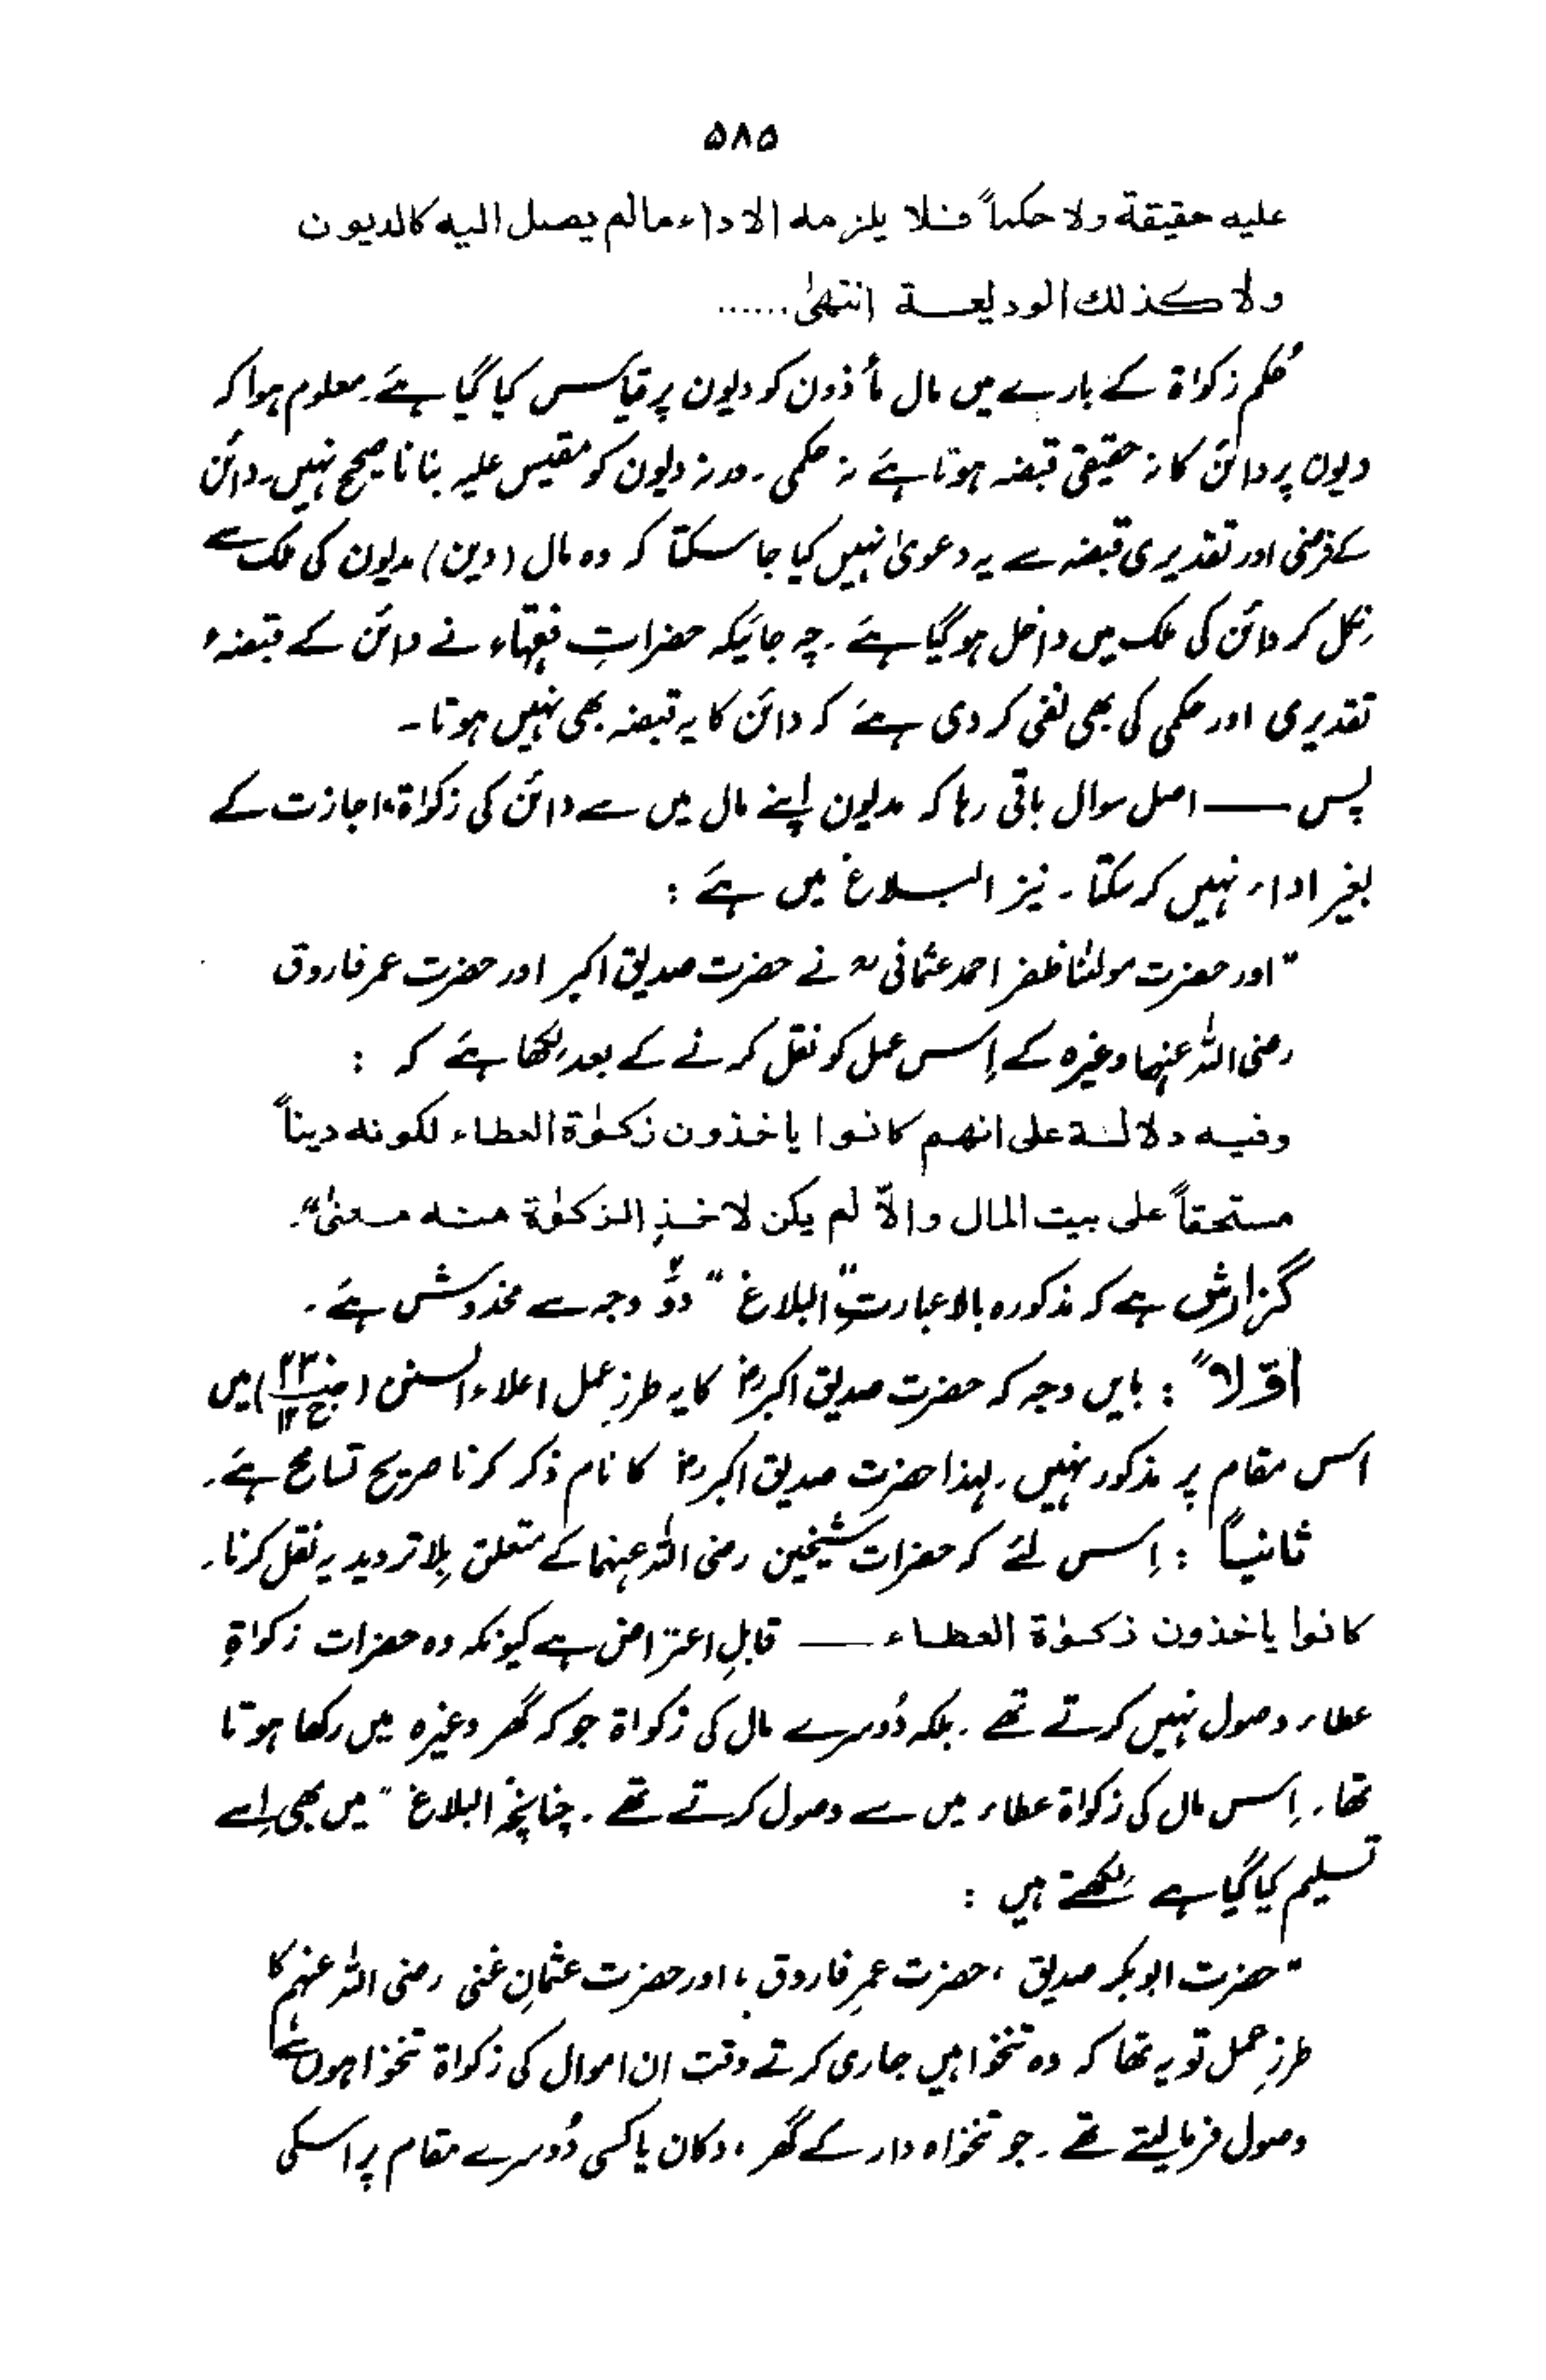 ۵۸۵
عليه حقيقة ولا حكماً فلا يلزمه الاداء مالم يصل اليه كالديون
ولا كذلك الوديعة انتهىٰ......
حُکم زکواۃ کے بارے میں مال مأذون کو دیون پر قیاس کیا گیا ہے۔ معلوم ہوا کہ
دیون پر دائن کا نہ حقیقی قبضہ ہوتا ہے نہ حکمی۔ ورنہ دیون کو مقیس علیہ بنانا صحیح نہیں۔ دائن
کے فرضی اور تقدیری قبضہ سے یہ دعویٰ نہیں کیا جا سکتا کہ وہ مال (دین) مدیون کی ملک سے
نِکل کر دائن کی ملک میں داخل ہو گیا ہے۔ چہ جائیکہ حضراتِ فقہاء نے دائن کے قبضۂ
تقدیری اور حکمی کی بھی نفی کر دی ہے کہ دائن کا یہ قبضہ بھی نہیں ہوتا۔
پس ــــ اصل سوال باقی رہا کہ مدیون اپنے مال میں سے دائن کی زکواۃ، اجازت کے
بغیر اداء نہیں کر سکتا۔ نیز البلاغ میں ہے :
"اور حضرت مولٰنا ظفر احمد عثمانیؒ نے حضرت صدیق اکبر اور حضرت عمر فاروق
رضی اللہ عنہما وغیرہ کے اِس عمل کو نقل کرنے کے بعد لکھا ہے کہ :
وفيه دلالة على انهم كانوا ياخذون زكوٰة العطاء لكونه ديناً
مستحقاً على بيت المال والّا لم يكن لاخذِ الزكوٰة منه معنىٰ"۔
گزارش ہے کہ مذکورہ بالا عبارتِ "البلاغ" دوؔ وجہ سے مخدوش ہے۔
اوّلاً : بایں وجہ کہ حضرت صدیق اکبرؓ کا یہ طرزِ عمل اعلاء السنن (ج۱۲) میں
اس مقام پر مذکور نہیں۔ لہذا حضرت صدیق اکبرؓ کا نام ذکر کرنا صریح تسامح ہے۔
ثانیاً : اِس لئے کہ حضرات شیخین رضی اللہ عنہما کے متعلق بِلا تردید یہ نقل کرنا۔
كانوا ياخذون زكوٰة العطاء ــــ قابلِ اعتراض ہے کیونکہ وہ حضرات زکواۃِ
عطاء وصول نہیں کرتے تھے۔ بلکہ دُوسرے مال کی زکواۃ جو کہ گھر وغیرہ میں رکھا ہوتا
تھا۔ اِس مال کی زکواۃ عطاء میں سے وصول کرتے تھے۔ چنانچہ البلاغ" میں بھی اِسے
تسلیم کیا گیا ہے لکھتے ہیں :
"حضرت ابوبکر صدیق ، حضرت عمرِ فاروق، اور حضرت عثمانِ غنی رضی اللہ عنہم کا
طرزِ عمل تو یہ تھا کہ وہ تنخواہیں جاری کرتے وقت اِن اموال کی زکواۃ تنخواہوں سے
وصول فرما لیتے تھے۔ جو تنخواہ دار کے گھر، دکان یا کسی دُوسرے مقام پر اسکی